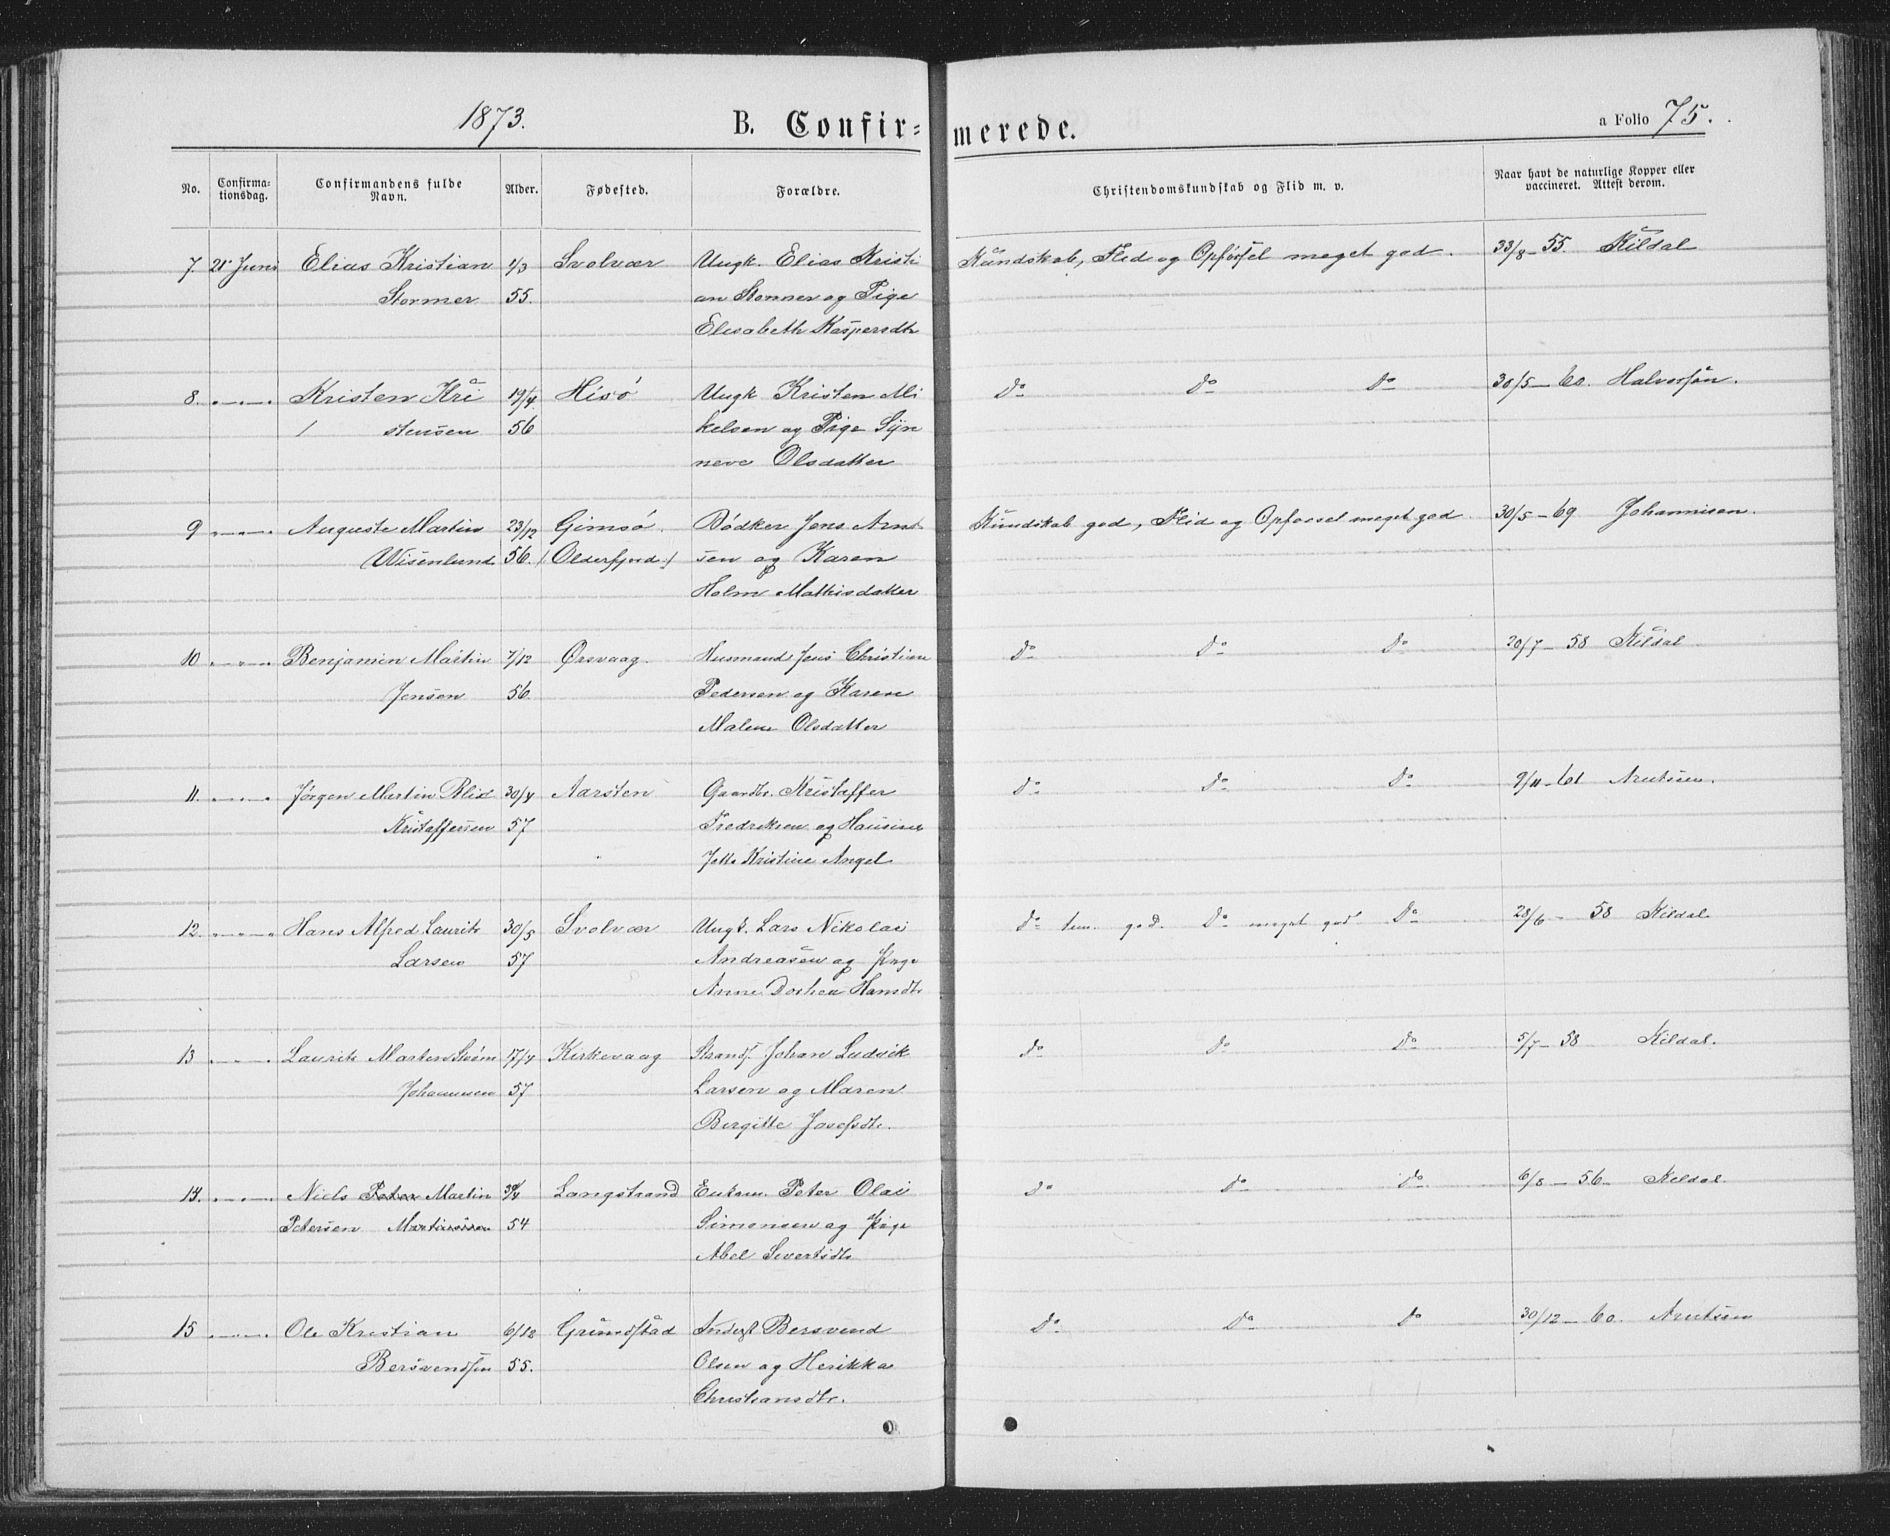 1873. B. Confir= merede. a Folio 75.
No. Confirma=tionsdag. Confirmandens fulde Navn. Alder. Fødested. Forældre. Christendomskundskab og Flid m. v. Naar havt de naturlige Kopper eller vaccineret. Attest derom.
7. 21 Juni Elias Kristian 1/3 Svolvær Ungk. Elias Kristi Kundskab, Flid og Opførsel meget god. 33/8 - 55. Kildal
Stormer 55. an Stormer og Pige
Elisabeth Kaspersdtr
8. Kristen Kri 19/4 Hisö Ungk Kristen Mi Do Do Do 30/5 - 60. Halvorsøn.
stensen 56 kelsen og Pige Syn
neve Olsdatter
9 Auguste Martin 23/12 Gimsö. Bödker Jens Arnt Kundskab god, Flid og Opførsel meget god. 30/5 - 69 Johannisen.
Wisenlund 56. (Olderfjord.) sen og Karen
Holm Mathisdatter
10 Benjamin Martin 7/12 Ørsvaag. Husmand Jens Christian Do Do Do 20/7 - 58 Kildal
Jensen 56. Pedersen og Karen
Malene Olsdatter
11. Jørgen Martin Blix 30/4 Aarsten Gaardbr. Kristaffer Do Do Do 9/11 - 61 Arntsen.
Kristaffersen 57 Fredriksen og Hansine
Jette Kristine Angel
12. Hans Alfred Laurits 30/5 Svolvær Ungk. Lars Nikolai Do tem. god. Do meget god. Do 28/6 - 58 Kildal
Larsen 57 Andreasen og Pige
Anne Dorthea Hansdtr
13 Laurits Marten Strøm 17/4 Kirkevaag Strands. Johan Ludvik Do Do Do 5/7 - 58 Kildal.
Johannesen 57 Larsen og Maren
Bergitte Josefsdtr.
14. Niels Peter Martin 30/4 Langstrand Enkem. Peter Olai Do Do Do 6/8 - 56 - Kildal.
Petersen Martinussen 54 Simonsen og Pige
Abel Sivertsdtr
15 Ole Kristian 6/12 Grundstad Inderst Bersvend Do Do Do 30/12 - 60. Arntsen
Bersvendsen 55. Olsen og Henrikka
Christiansdtr.